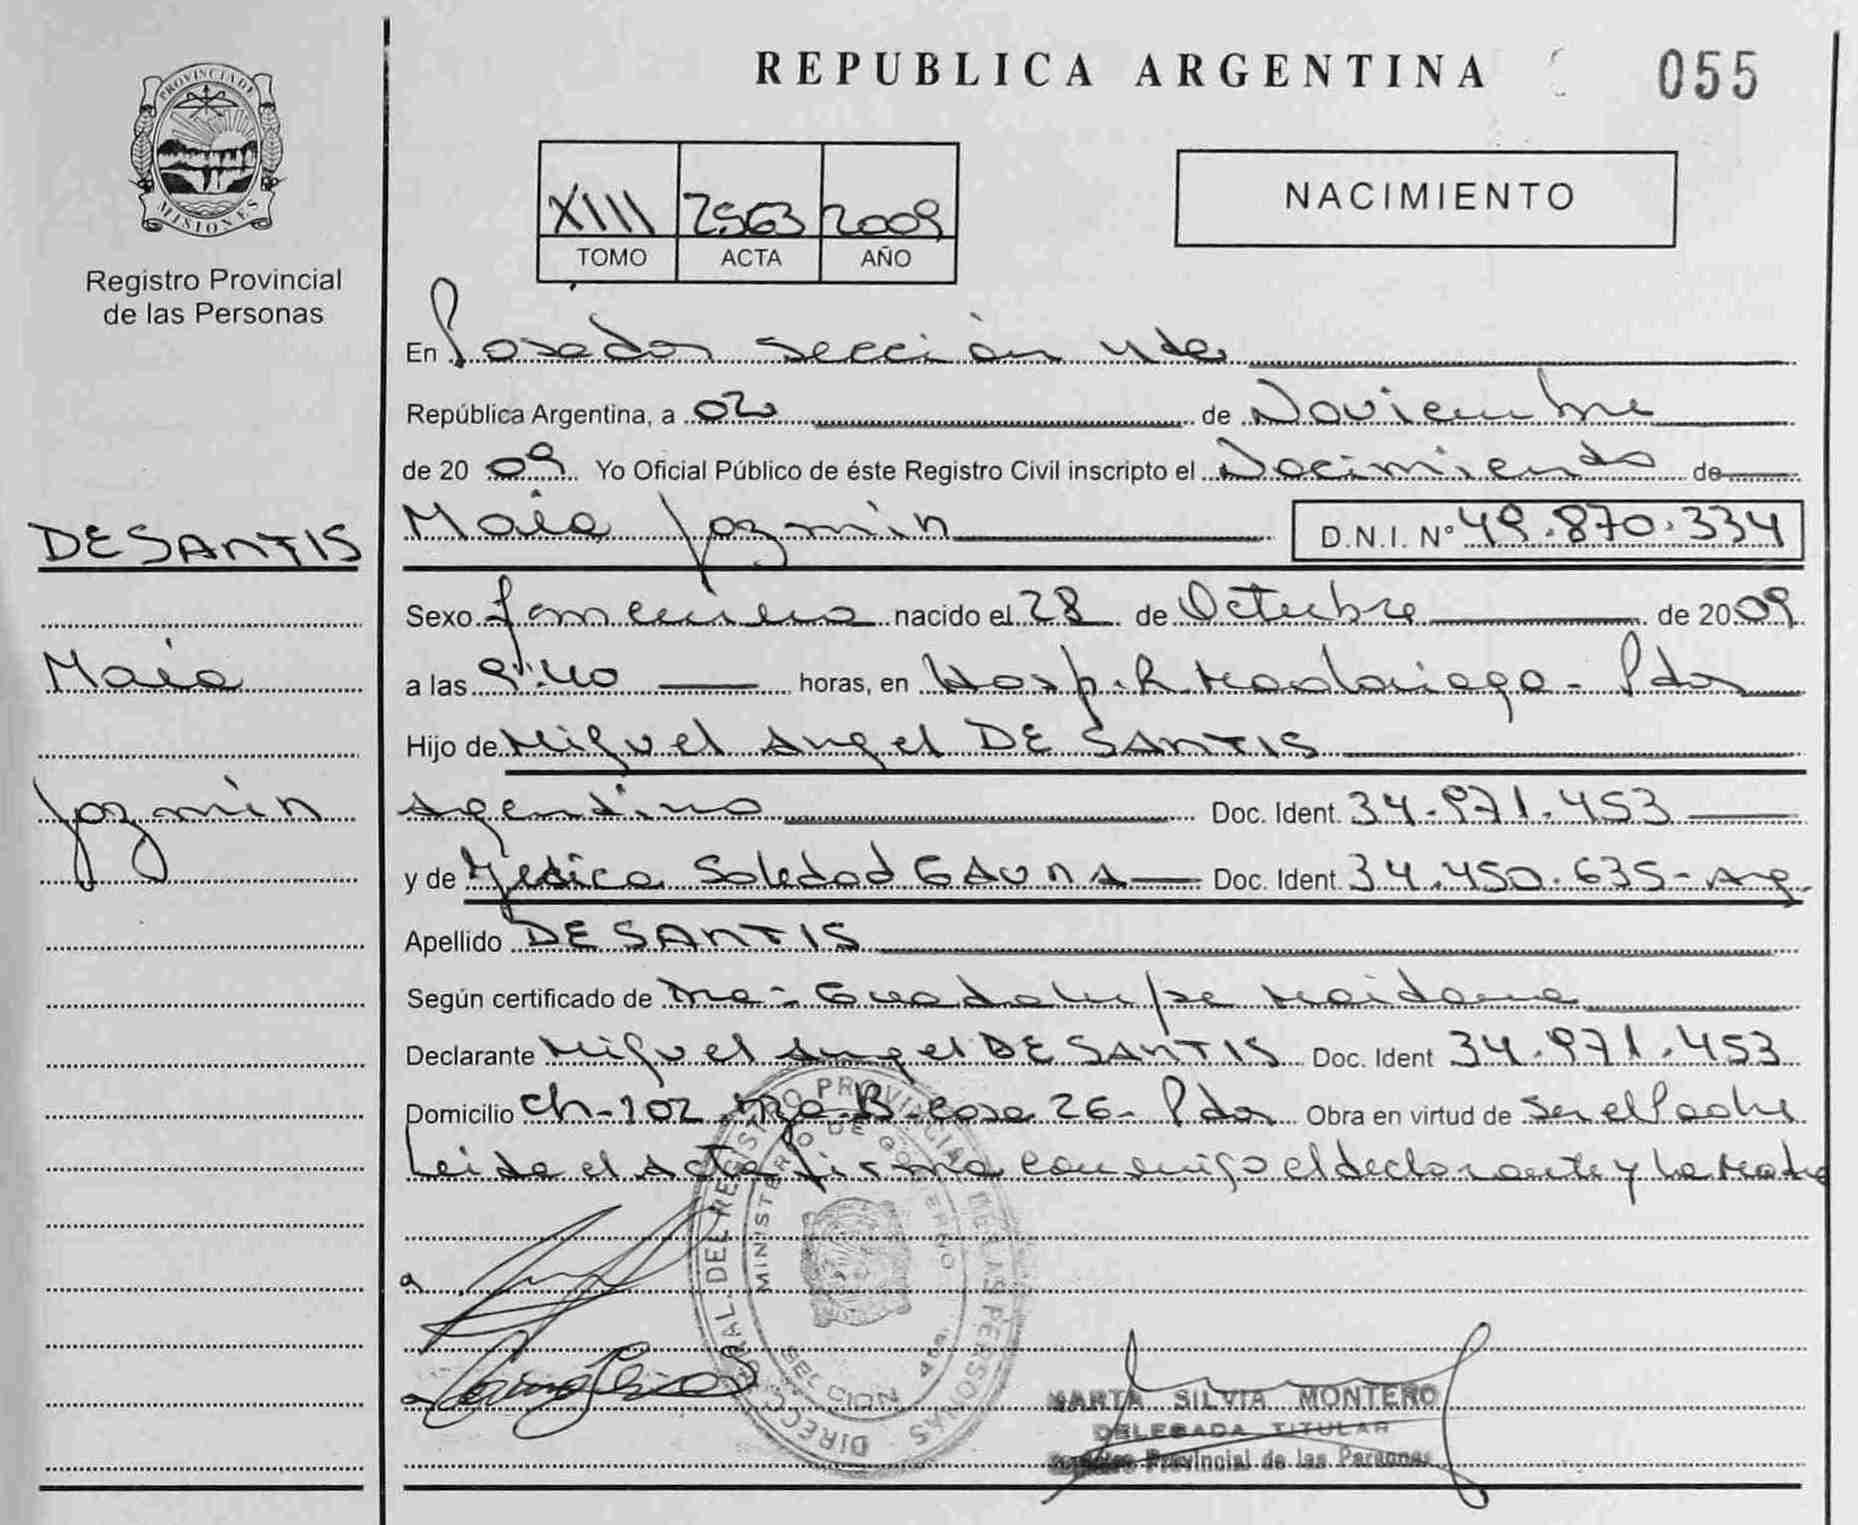 PROVINCIA DE
MISIONES
Registro Provincial
de las Personas
DE SANTIS
Maia
Jazmin
REPUBLICA ARGENTINA
055
XIII 2563 2009
TOMO ACTA AÑO
NACIMIENTO
En Posadas sección 4ta
República Argentina, a 02 de Noviembre
de 2009 Yo Oficial Público de éste Registro Civil inscripto el Nacimiento de
Maia Jazmin D.N.I. Nº 49.870.334
Sexo femenino nacido el 28 de Octubre de 2009
a las 9:40 horas, en Hosp. R. Madariaga - Pdas
Hijo de Miguel Angel DE SANTIS
Argentino Doc. Ident. 34.971.453
y de Yesica Soledad GAUNA Doc. Ident. 34.450.635 - Arg.
Apellido DE SANTIS
Según certificado de Dra. Guadalupe Maidana
Declarante Miguel Angel DE SANTIS Doc. Ident 34.971.453
Domicilio Ch-102 Mza. B casa 26 - Pdas Obra en virtud de Ser el Padre
Leida el Acta firma conmigo el declarante y la Madre
DIRECC GRAL. DEL REGISTRO PROVINCIAL DE LAS PERSONAS
MINISTERIO DE GOBIERNO
MARTA SILVIA MONTERO
DELEGADA TITULAR
Registro Provincial de las Personas